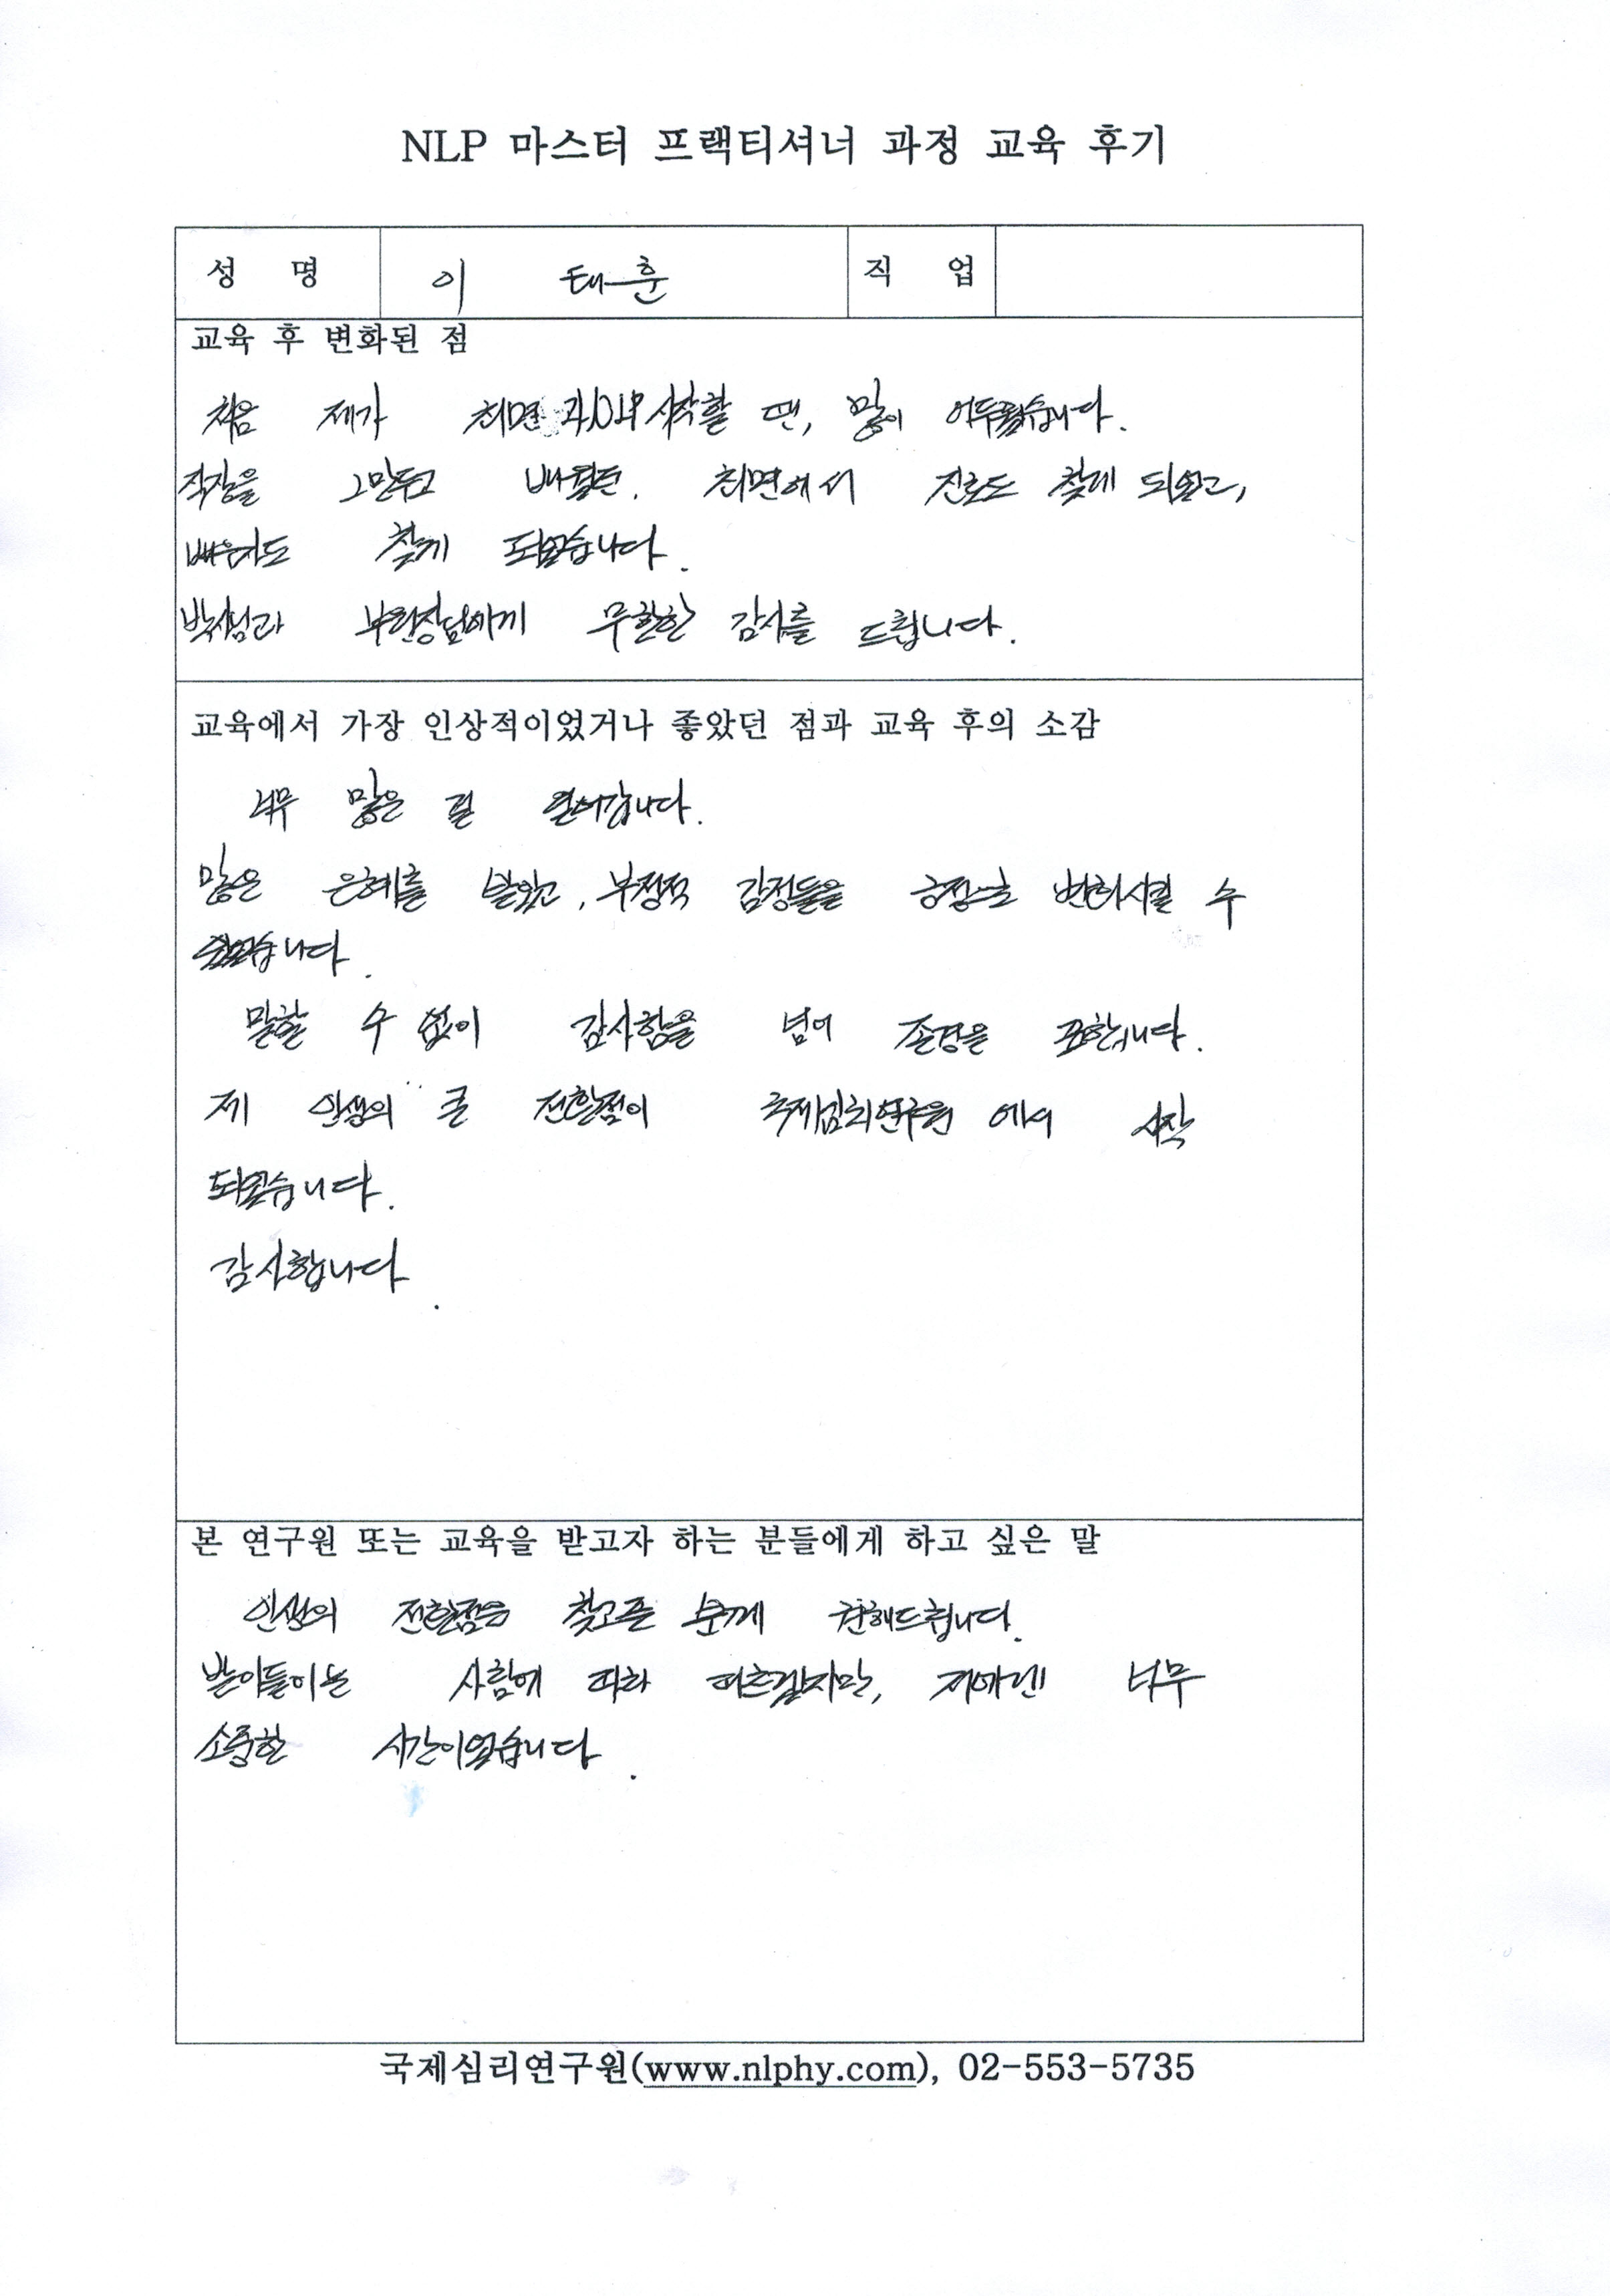 NLP 마스터 프랙티셔너 과정 교육 후기
성 명 이 태훈 직 업
교육 후 변화된 점
처음 제가 최면과 NLP 시작할 땐, 많이 어두웠습니다.
직장을 그만두고 배웠던. 최면에서 진로도 찾게 되었고,
찾게 되었습니다.
박사님과 부원장님에게 무한한 감사를 드립니다.
교육에서 가장 인상적이었거나 좋았던 점과 교육 후의 소감
너무 많은 걸 얻어갑니다.
많은 은혜를 받았고, 부정적 감정들을 긍정으로 변화시킬 수
있었습니다.
말할 수 없이 감사함을 넘어 존경을 표합니다.
제 인생의 큰 전환점이 국제심리연구원 에서 시작
되었습니다.
감사합니다.
본 연구원 또는 교육을 받고자 하는 분들에게 하고 싶은 말
인생의 전환점을 찾고픈 분께 권해드립니다.
받아들이는 사람에 따라 다르겠지만, 저에겐 너무
소중한 시간이었습니다.
국제심리연구원(www.nlphy.com), 02-553-5735